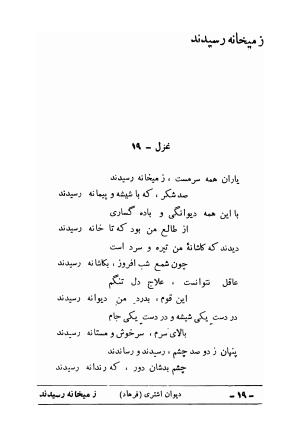 ز میخانه رسیدند
غزل - ۱۹
یاران همه سرمست ، ز میخانه رسیدند
صد شکر ، که با شیشه و پیمانه رسیدند
با این همه دیوانگی و باده گساری
از طالع من بود که تا خانه رسیدند
دیدند که کاشانهٔ من تیره و سرد است
چون شمع شب افروز ، بکاشانه رسیدند
عاقل نتوانست ، علاج دل تنگم
این قوم ، بدرد من دیوانه رسیدند
در دست یکی شیشه و در دست یکی جام
بالای سرم ، سرخوش و مستانه رسیدند
پنهان ز دو صد چشم ، رسیدند و رساندند
چشم بدشان دور ، که رندانه رسیدند
ز میخانه رسیدند دیوان اشتری (فرهاد) - ۱۹ -